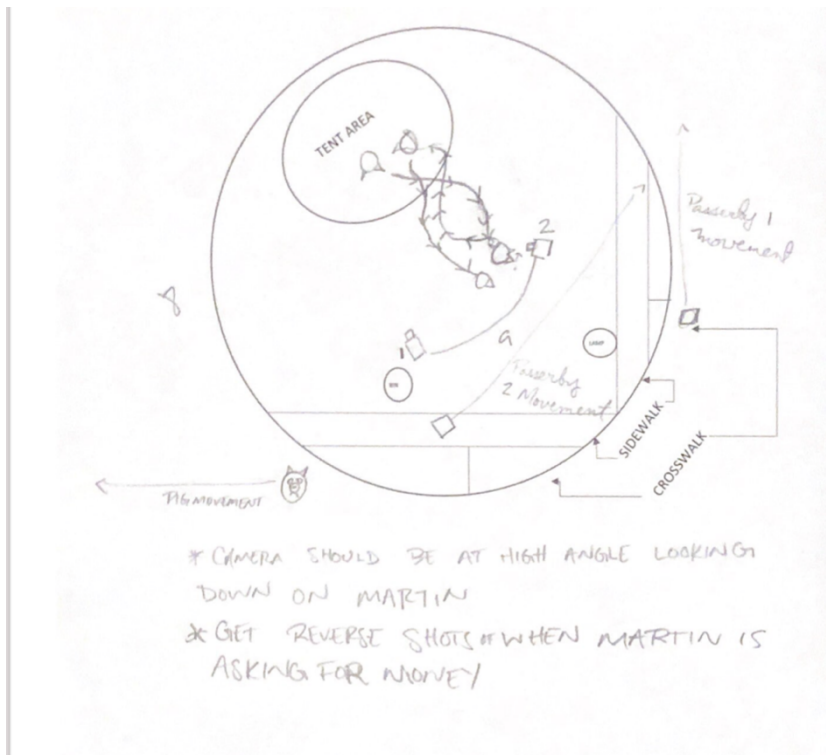 TENT AREA
2
Passerby 1
movement
8
1
a
LIGHT
Passerby
2 Movement
SIDEWALK
CROSSWALK
PIG MOVEMENT
* CAMERA SHOULD BE AT HIGH ANGLE LOOKING
DOWN ON MARTIN
* GET REVERSE SHOTS OF WHEN MARTIN IS
ASKING FOR MONEY